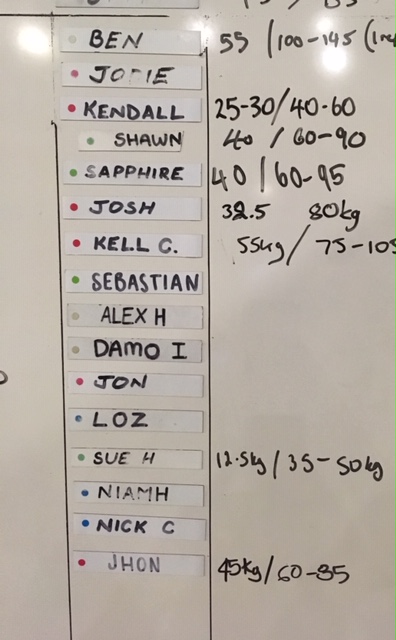 BEN 55 / 100-145 (
JODIE
KENDALL 25-30/40-60
SHAWN 40 / 60-90
SAPPHIRE 40 / 60-95
JOSH 32.5 80kg
KELL C. 55kg / 75-105
SEBASTIAN
ALEX H
DAMO I
JON
LOZ
SUE H 12.5kg / 35-50kg
NIAMH
NICK C
JHON 45kg/60-85